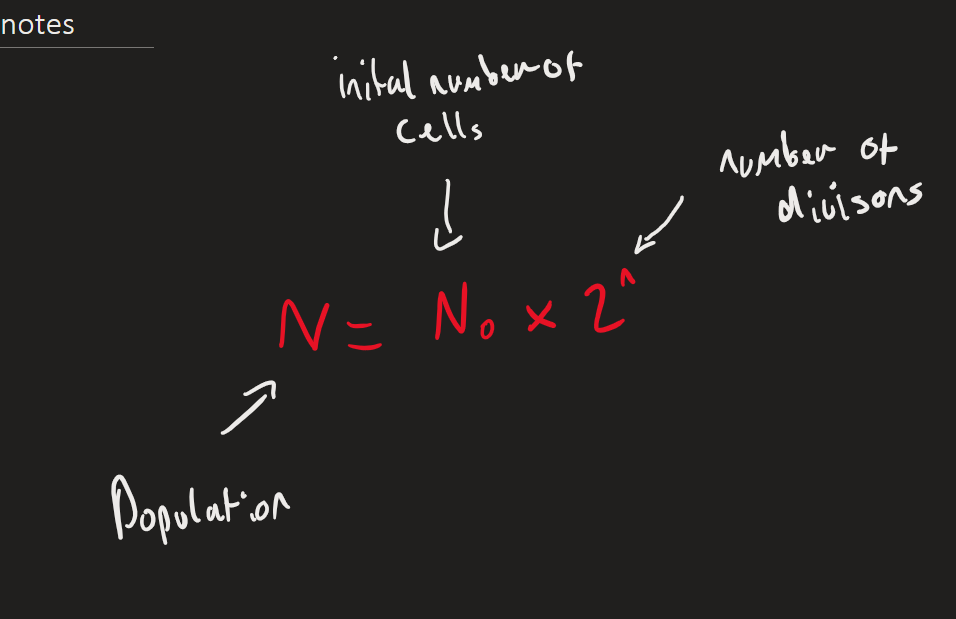 notes
inital number of
cells
number of
divisons
N = N₀ × 2ⁿ
Population